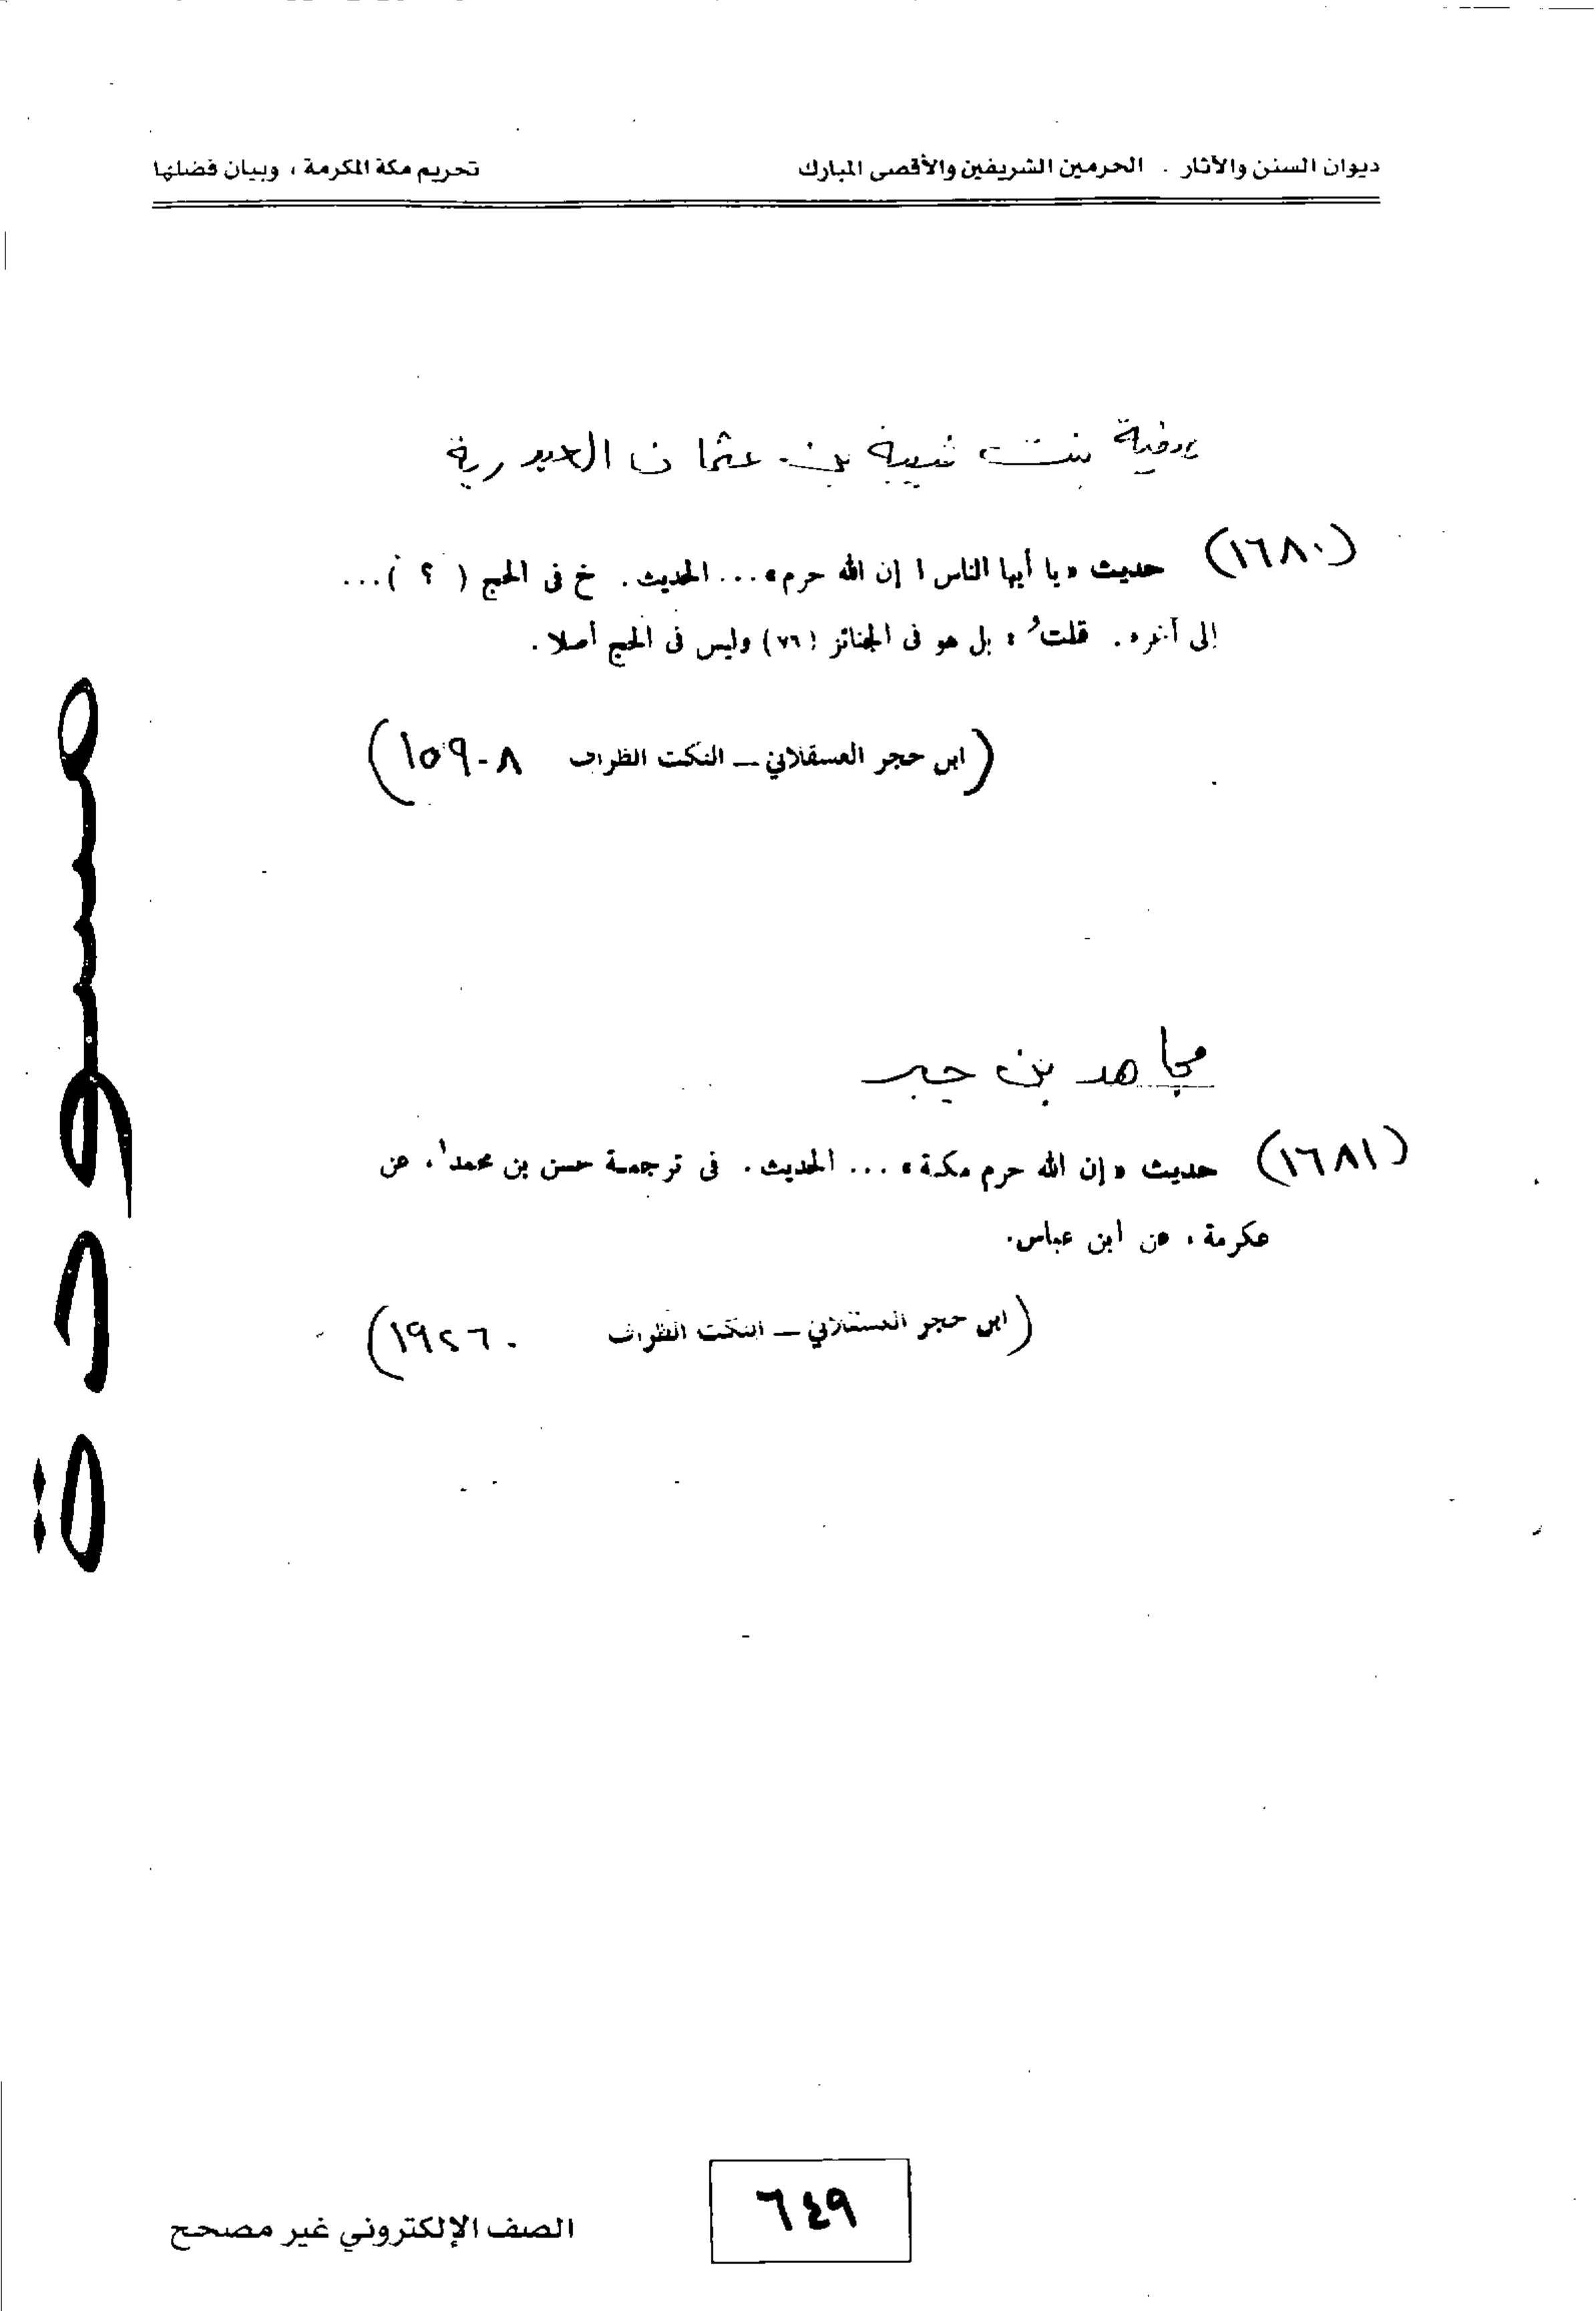 ديوان السنن والآثار . الحرمين الشريفين والأقصى المبارك
تحريم مكة المكرمة ، وبيان فضلها
صفية بنت شيبة بن عثمان العبدرية
(١٦٨٠) حديث «يا أيها الناس ! إن الله حرم» ... الحديث . خ فى الحج ( ؟ ) ...
إلى آخره . قلتُ : بل هو فى الجنائز (٧٦) وليس فى الحج أصلا .
(ابن حجر العسقلاني – النكت الظراف ١٥٩٠٨)
مجاهد بن جبر
(١٦٨١) حديث «إن الله حرم مكة» ... الحديث . فى ترجمة حسن بن محمد، عن
عكرمة ، عن ابن عباس .
(ابن حجر العسقلاني – النكت الظراف ١٩٢٦٠)
مسودة
٦٤٩
الصف الإلكتروني غير مصحح